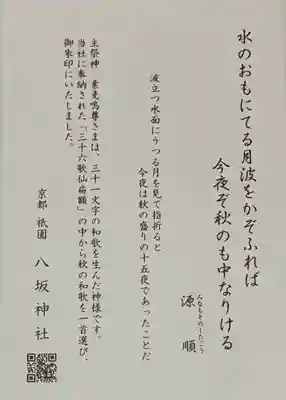 水のおもにてる月波をかぞふれば
今夜ぞ秋のも中なりける
源 順
みなもとのしたごう
波立つ水面にうつる月を見て指折ると
今夜は秋の盛りの十五夜であったことだ
主祭神 素戔嗚尊さまは、三十一文字の和歌を生んだ神様です。
当社に奉納された「三十六歌仙扁額」の中から秋の和歌を一首選び、
御朱印にいたしました。
京都 祇園 八坂神社